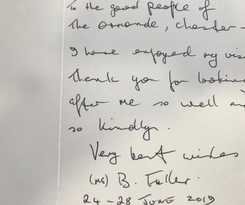 To the good people of
The Ormonde, Chester -
I have enjoyed my vis
Thank you for looking
after me so well an
so kindly.
Very best wishes
(Ms) B. Fuller.
24 - 28 JUNE 2019